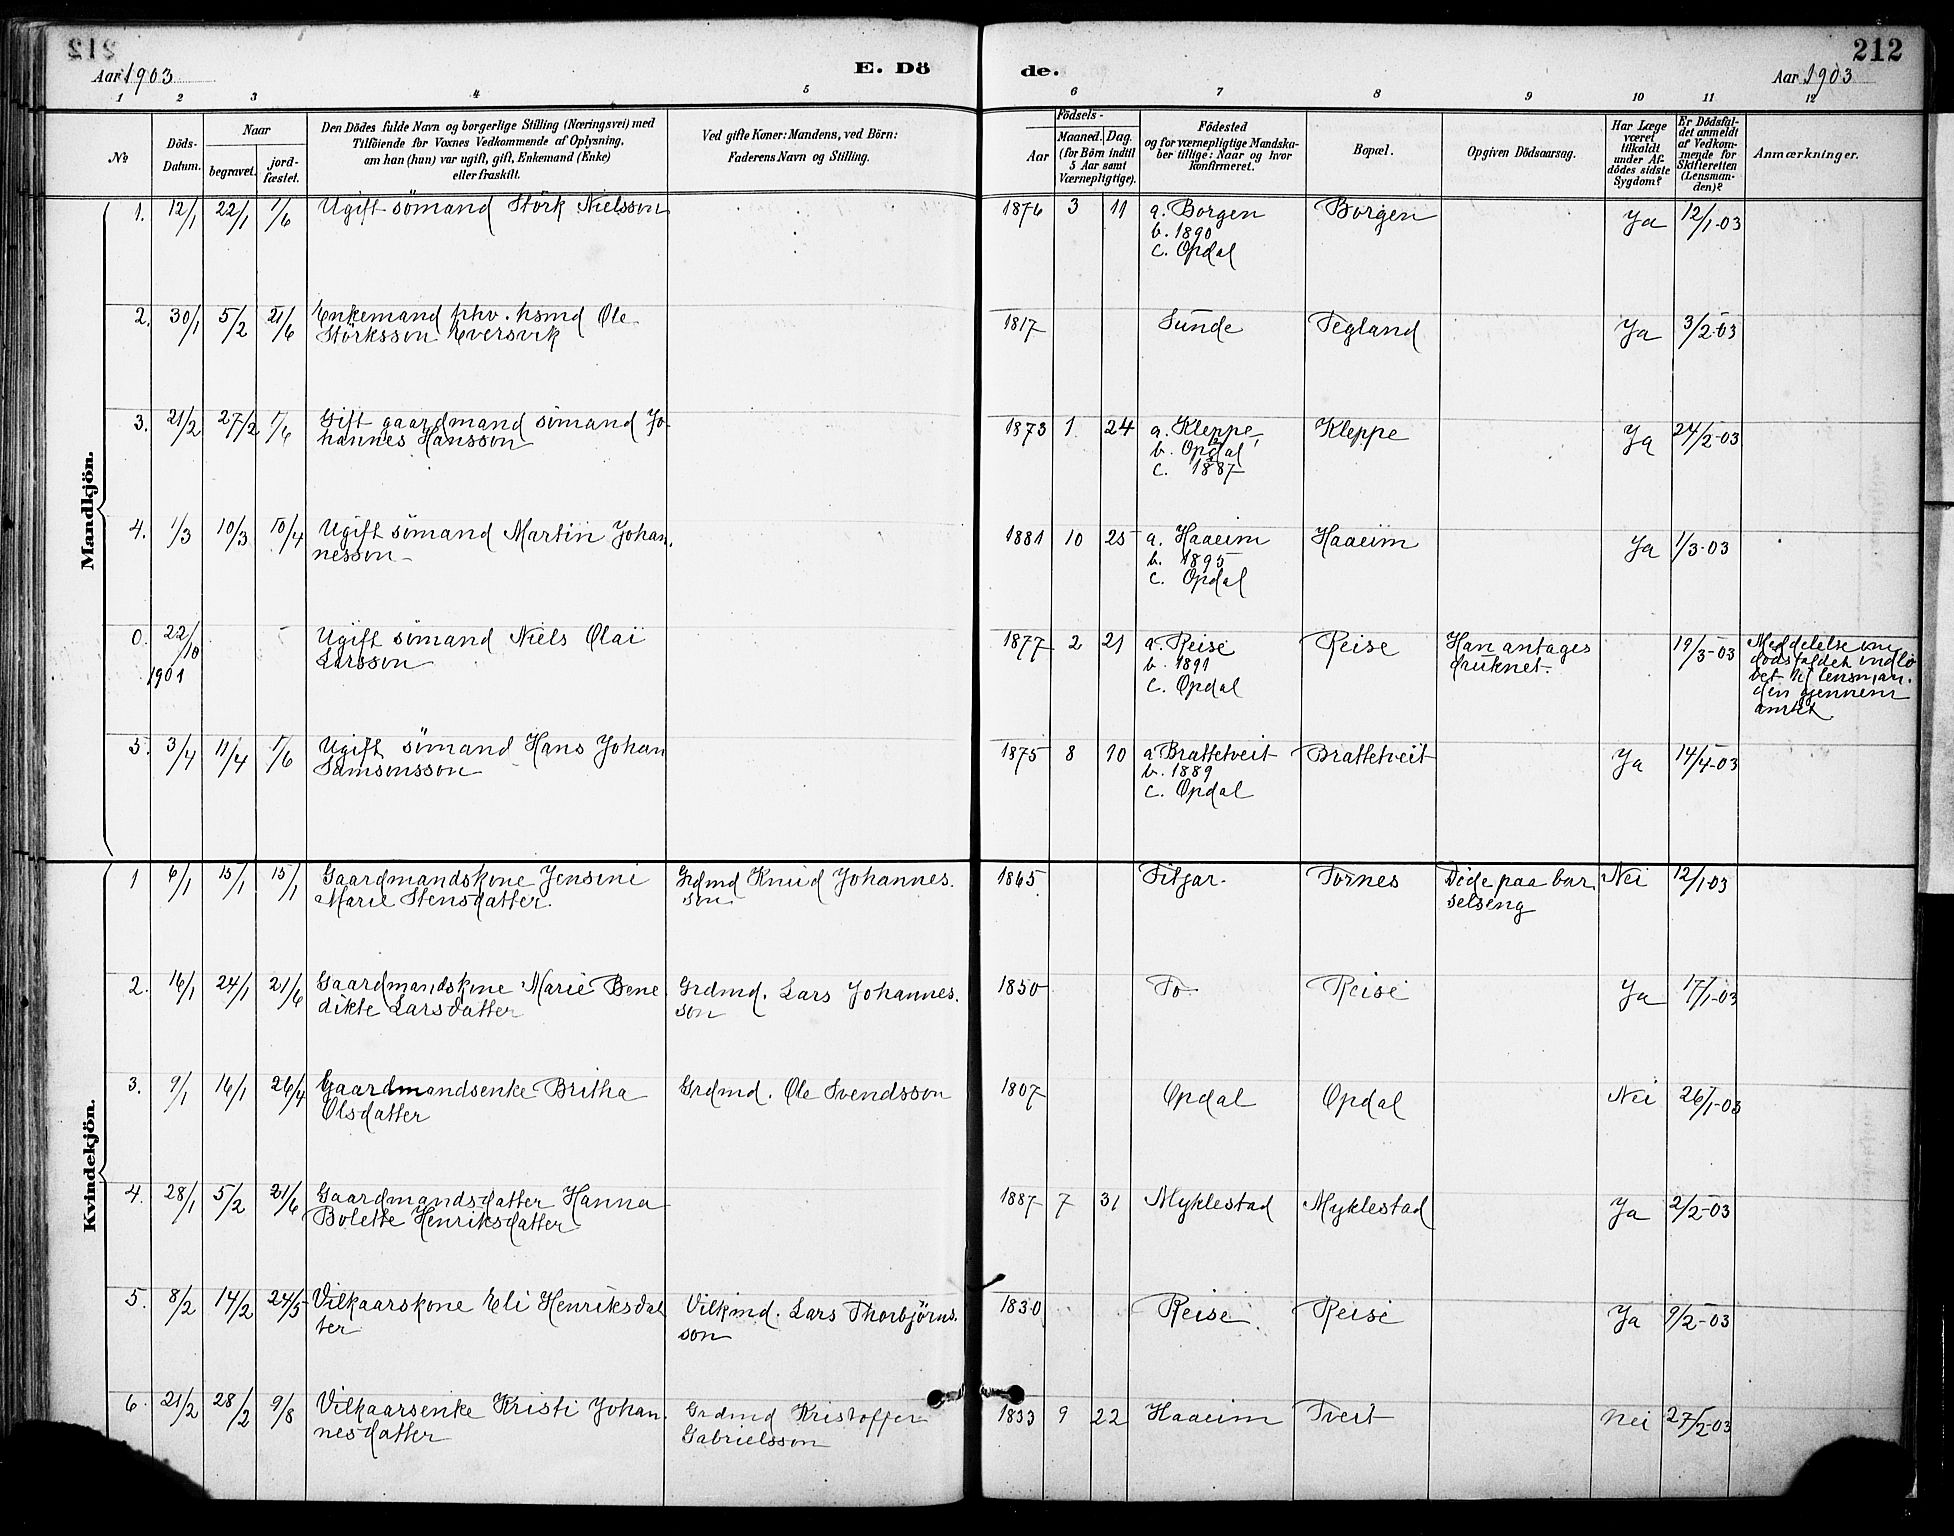 212
Aar 1903
E. Dö
de.
Aar 1903
212
1 2 3 4 5 6 7 8 9 10 11 12
№
Döds-
Datum.
Naar
begravet.
jord-
fæstet.
Den Dödes fulde Navn og borgerlige Stilling (Næringsvei) med
Tilföiende for Voxnes Vedkommende af Oplysning,
om han (hun) var ugift, gift, Enkemand (Enke)
eller fraskilt.
Ved gifte Koner: Mandens, ved Börn:
Faderens Navn og Stilling.
Födsels-
Aar
Maaned. Dag.
(for Börn indtil
5 Aar samt
Værnepligtige).
Födested
og for værnepligtige Mandska-
ber tillige: Naar og hvor
konfirmeret.
Bopæl.
Opgiven Dödsaarsag.
Har Læge
været
tilkaldt
under Af-
dödes sidste
Sygdom?
Er Dödsfal-
det anmeldt
af Vedkom-
mende for
Skifteretten
(Lensman-
den)?
Anmærkninger.
Mandkjön.
1. 12/1 22/1 1/6 Ugift sömand Störk Nielsson 1876 3 11 a. Borgen Borgen Ja 12/1-03
b. 1890
c. Opdal
2. 30/1 5/2 21/6 Enkemand fhv. hsmd Ole 1817 Sunde Tegland Ja 3/2-03
Störksson Eversvik
3. 21/2 27/2 1/6 Gift gaardmand sömand Jo- 1873 1 24 a. Kleppe Kleppe Ja 24/2-03
hannes Hansson b. Opdal
c. 1887
4. 1/3 10/3 10/4 Ugift sömand Martin Johan- 1881 10 25 a. Haaeim Haaeim Ja 1/3-03
nesson b. 1895
c. Opdal
0. 22/10 Ugift sömand Niels Olai 1877 2 21 a. Reise Reise Han antages 19/3-03 Meddelelse om
1901 Larsson b. 1891 druknet. dödsfaldet indlö-
c. Opdal bet til lensman-
den gjennem
amtet
5. 3/4 11/4 1/6 Ugift sömand Hans Johan 1875 8 10 a Brattetveit Brattetveit Ja 14/4-03
Samsonsson b. 1889
c. Opdal
Kvindekjön.
1 6/1 15/1 15/1 Gaardmandskone Jensine Grdmd Knud Johannes- 1865 Fitjar Tornes Döde paa bar- Nei 12/1-03
Marie Stensdatter son selseng
2. 16/1 24/1 21/6 Gaardmandskone Marie Bene- Grdmd. Lars Johannes- 1850 To Reise Ja 17/1-03
dikte Larsdatter son
3. 9/1 16/1 26/4 Gaardmandsenke Britha Grdmd. Ole Svendsson 1807 Opdal Opdal Nei 26/1-03
Olsdatter
4. 28/1 5/2 21/6 Gaardmandsdatter Hanna 1887 7 31 Myklestad Myklestad Ja 2/2-03
Bolette Henriksdatter
5. 8/2 14/2 24/5 Vilkaarskone Eli Henriksdat- Vilkmd. Lars Thorbjörns- 1830 Reise Reise Ja 9/2-03
ter son
6. 21/2 28/2 9/8 Vilkaarsenke Kristi Johan- Grdmd Kristoffer 1833 9 22 Haaeim Tveit Nei 27/2-03
nesdatter Gabrielsson